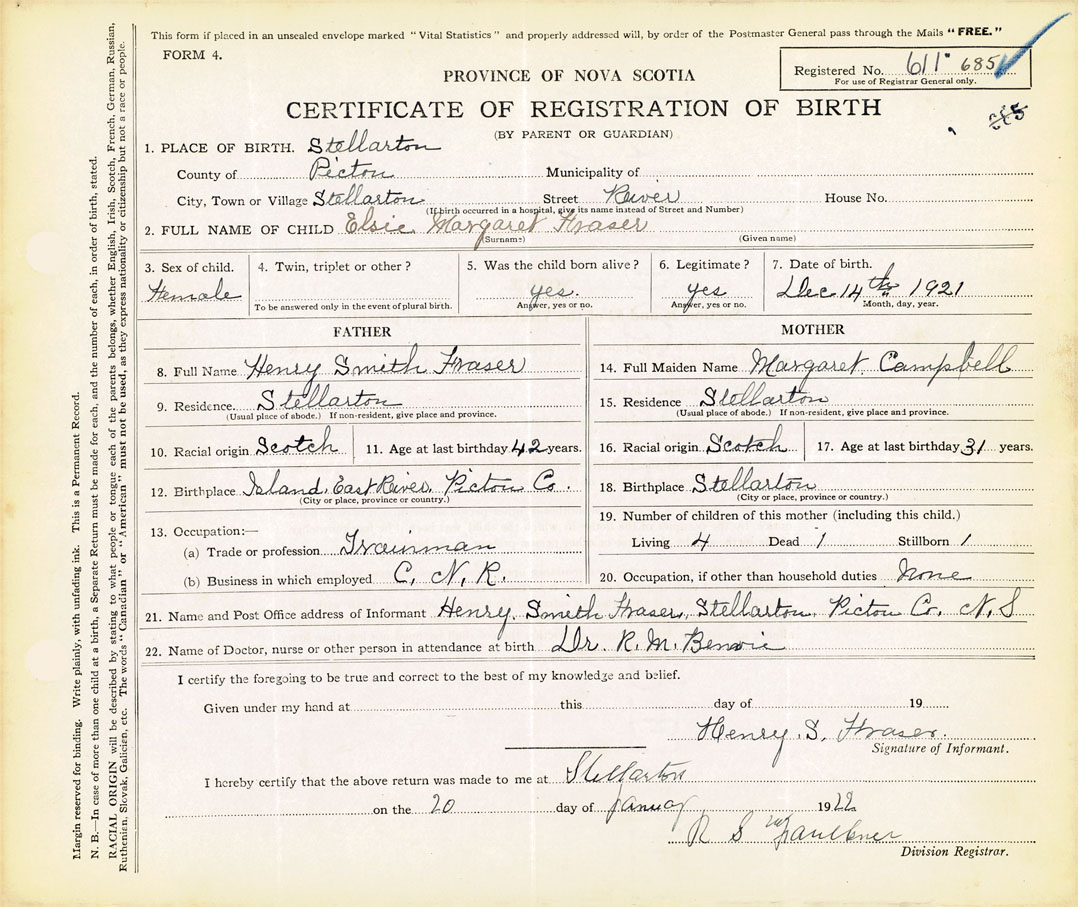 This form if placed in an unsealed envelope marked "Vital Statistics" and properly addressed will, by order of the Postmaster General pass through the Mails "FREE."
FORM 4.
Registered No. 611 685
For use of Registrar General only.
PROVINCE OF NOVA SCOTIA
CERTIFICATE OF REGISTRATION OF BIRTH
(BY PARENT OR GUARDIAN)
1. PLACE OF BIRTH. Stellarton
County of Picton Municipality of
City, Town or Village Stellarton Street River House No.
(If birth occurred in a hospital, give its name instead of Street and Number)
2. FULL NAME OF CHILD Elsie Margaret Fraser
(Surname) (Given name)
3. Sex of child. 4. Twin, triplet or other? 5. Was the child born alive? 6. Legitimate? 7. Date of birth.
Female yes. yes Dec 14th 1921
To be answered only in the event of plural birth. Answer, yes or no. Answer, yes or no. Month, day, year.
FATHER
8. Full Name Henry Smith Fraser
9. Residence. Stellarton
(Usual place of abode.) If non-resident, give place and province.
10. Racial origin Scotch 11. Age at last birthday 42 years.
12. Birthplace Island, East River, Picton Co.
(City or place, province or country.)
13. Occupation:—
(a) Trade or profession Trainman
(b) Business in which employed C. N. R.
MOTHER
14. Full Maiden Name Margaret Campbell
15. Residence Stellarton
(Usual place of abode.) If non-resident, give place and province.
16. Racial origin Scotch 17. Age at last birthday 31 years.
18. Birthplace Stellarton
(City or place, province or country.)
19. Number of children of this mother (including this child.)
Living 4 Dead 1 Stillborn 1
20. Occupation, if other than household duties None
21. Name and Post Office address of Informant Henry, Smith Fraser, Stellarton Picton Co. N. S
22. Name of Doctor, nurse or other person in attendance at birth Dr. R. M. Benvie
I certify the foregoing to be true and correct to the best of my knowledge and belief.
Given under my hand at this day of 19
Henry. S. Fraser.
Signature of Informant.
I hereby certify that the above return was made to me at Stellarton
on the 20 day of January 1922
R S Faulkner
Division Registrar.
Margin reserved for binding. Write plainly, with unfading ink. This is a Permanent Record.
N. B.—In case of more than one child at a birth, a Separate Return must be made for each, and the number of each, in order of birth, stated.
RACIAL ORIGIN will be described by stating to what people or tongue each of the parents belongs, whether English, Irish, Scotch, French, German, Russian,
Ruthenian, Slovak, Galician, etc. The words "Canadian" or "American" must not be used, as they express nationality or citizenship but not a race or people.